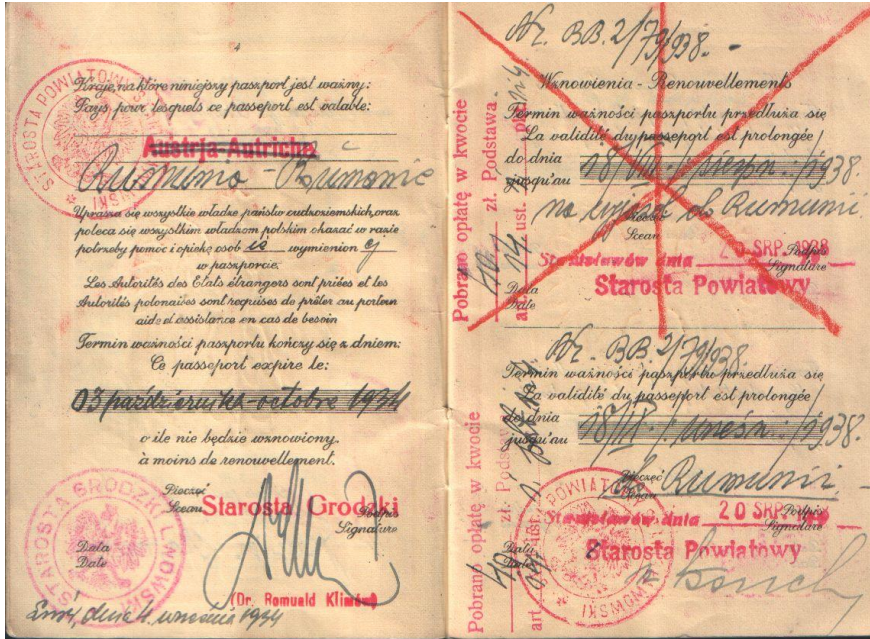 4
Kraje, na które niniejszy paszport jest ważny:
Pays pour lesquels ce passeport est valable:
Austrja-Autriche
Rumunia - Rumanie
Uprasza się wszystkie władze państw cudzoziemskich, oraz
poleca się wszystkim władzom polskim okazać w razie
potrzeby pomoc i opiekę osob ie wymienion ej
w paszporcie.
Les Autorités des Etats étrangers sont priées et les
Autorités polonaises sont requises de prêter au porteur
aide et assistance en cas de besoin
Termin ważności paszportu kończy się z dniem:
Ce passeport expire le:
03 października-octobre 1934
o ile nie będzie wznowiony.
à moins de renouvellement.
Pieczęć
Sceau
Starosta Grodzki
Podpis
Signature
STAROSTA GRODZKI LWOWSKI
Data
Date
(Dr. Romuald Klimów)
Lwów, dnia 4. września 1934
STAROSTA POWIATOWY
Nr. BB. 2/79/938. -
Wznowienia - Renouvellements
Termin ważności paszportu przedłuża się
La validité du passeport est prolongée
do dnia
jusqu'au
18/VIII. /sierpn./ 1938.
na wyjazd do Rumunii.
Pieczęć
Sceau
20 SRP. 1938
Podpis
Signature
Stanisławów dnia
Starosta Powiatowy
Data
Date
Pobrano opłatę w kwocie
zł. Podstawa
art. ust. pkt.
Nr. BB. 2/79/938.
Termin ważności paszportu przedłuża się
La validité du passeport est prolongée
do dnia
jusqu'au
18/IX. /wrześn./ 1938.
do Rumunii -
Pieczęć
Sceau
20 SRP.
Podpis
Signature
Stanisławów dnia
Starosta Powiatowy
Data
Date
Pobrano opłatę w kwocie
zł. Podstawa
art. ust.
POWIATOWY